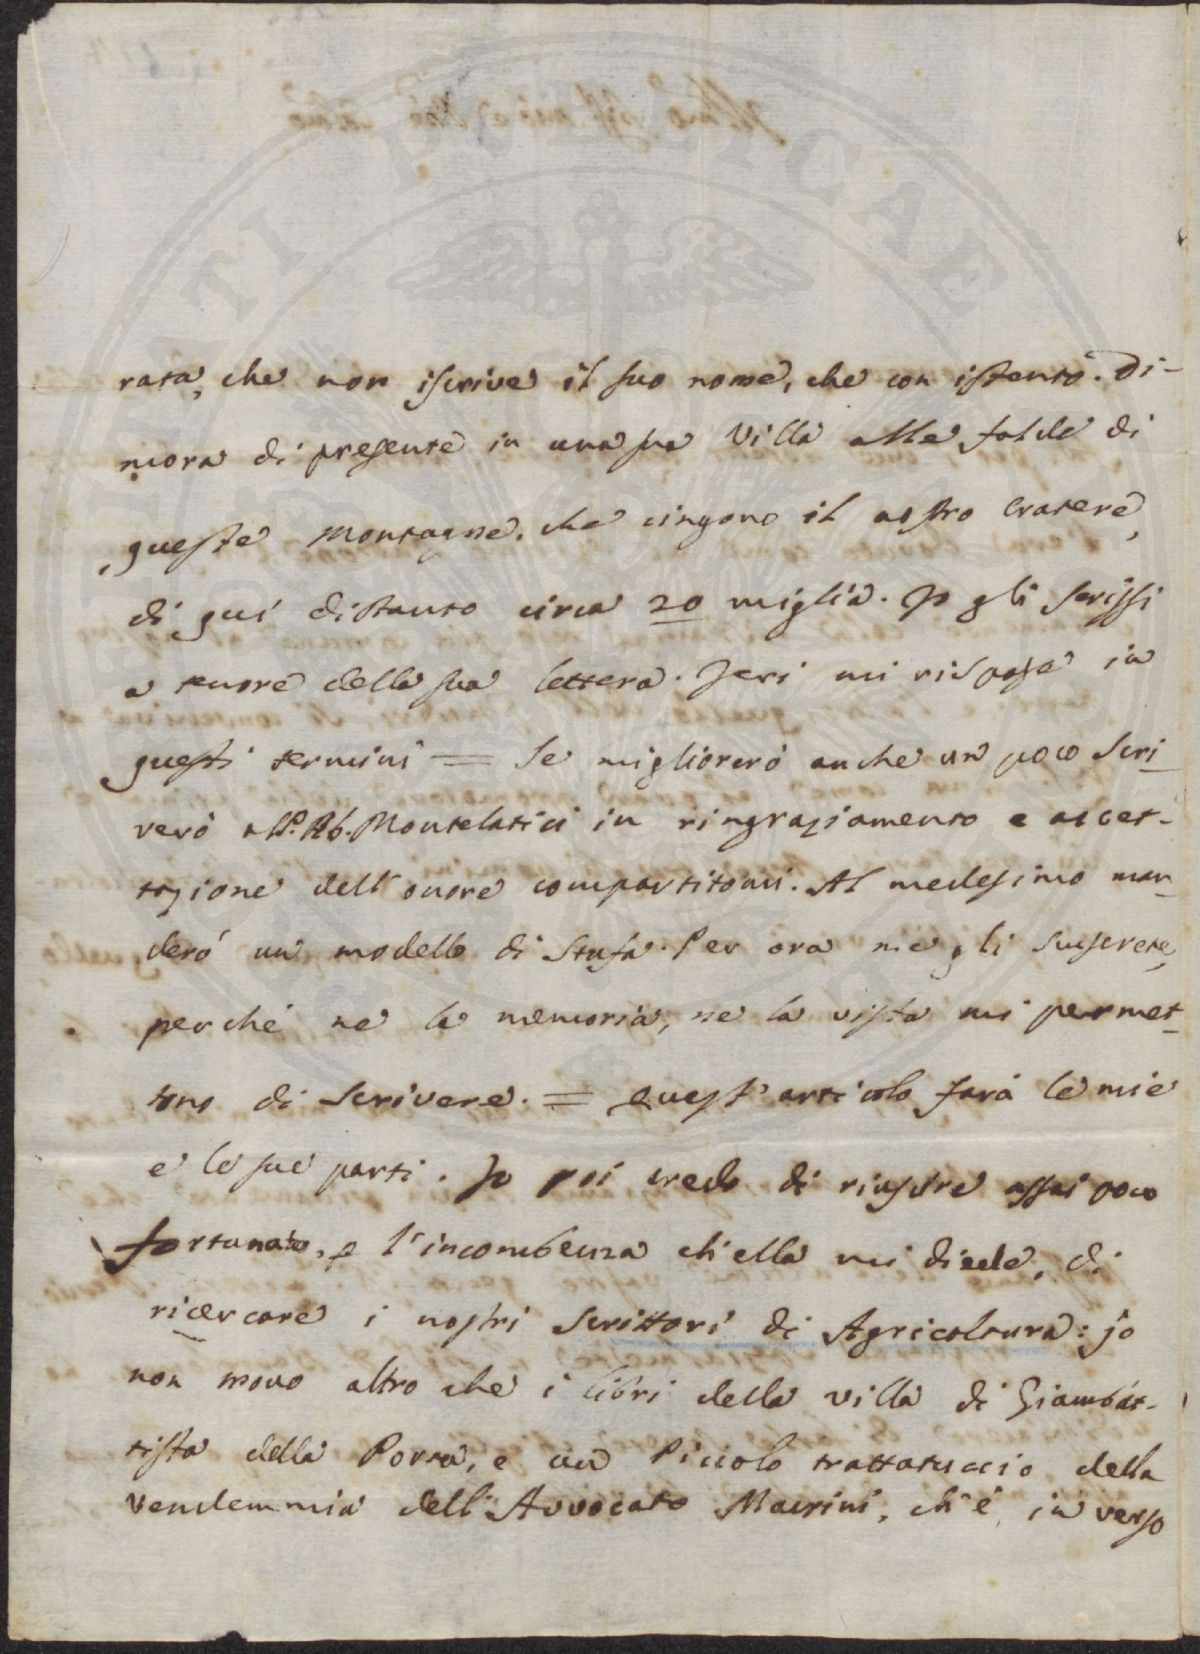 rata, che non iscrive il suo nome, che con istento. Di-
mora di presente in una sua Villa alle falde di
queste montagne, che cingono il nostro Cratere,
di qui distante circa 20 miglia. Io gli scrissi
a tenore della sua lettera. Jeri mi rispose in
questi termini = Se migliorerò anche un poco scri
verò al P. Ab. Montelatici in ringraziamento e accet-
tazione dell'onore compartitomi. Al medesimo man
derò un modello di Stufa. Per ora me gli scuserete,
perché né la memoria, né la vista mi permet
tono di scrivere. = Quest'articolo farà le mie
e le sue parti. Io poi credo di riuscire assai poco
fortunato, l'incombenza ch'ella mi diede, di
ricercare i nostri Scrittori di Agricoltura: jo
non trovo altro che i libri della villa di Giambat-
tista della Porta, e un Piccolo trattatuccio della
vendemmia dell'Avvocato Macrini, ch'è in verso